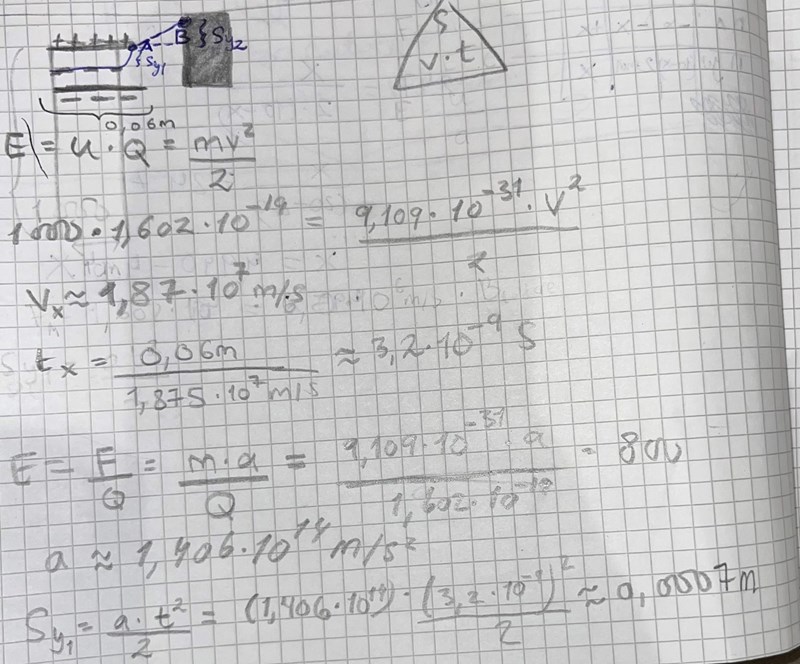 ++ +++
A B } Sy2
} Sy1
— — —
0,06m
S
v.t
E = U · Q = mv²/2
1000 · 1,602 · 10⁻¹⁹ = 9,109 · 10⁻³¹ · V²/2
Vx ≈ 1,87 · 10⁷ m/s
tx = 0,06m/1,875 · 10⁷ m/s ≈ 3,2 · 10⁻⁹ S
E = F/Q = m·a/Q = 9,109 · 10⁻³¹ · a/1,602 · 10⁻¹⁹ = 800
a ≈ 1,406 · 10¹⁴ m/s²
Sy1 = a · t²/2 = (1,406 · 10¹⁴) · (3,2 · 10⁻⁹)²/2 ≈ 0,0007 m